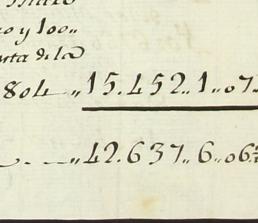 o y 100,,
rta de la
804 ,, 15.452,, 1,, 07
,, 42.637,, 6,, 06